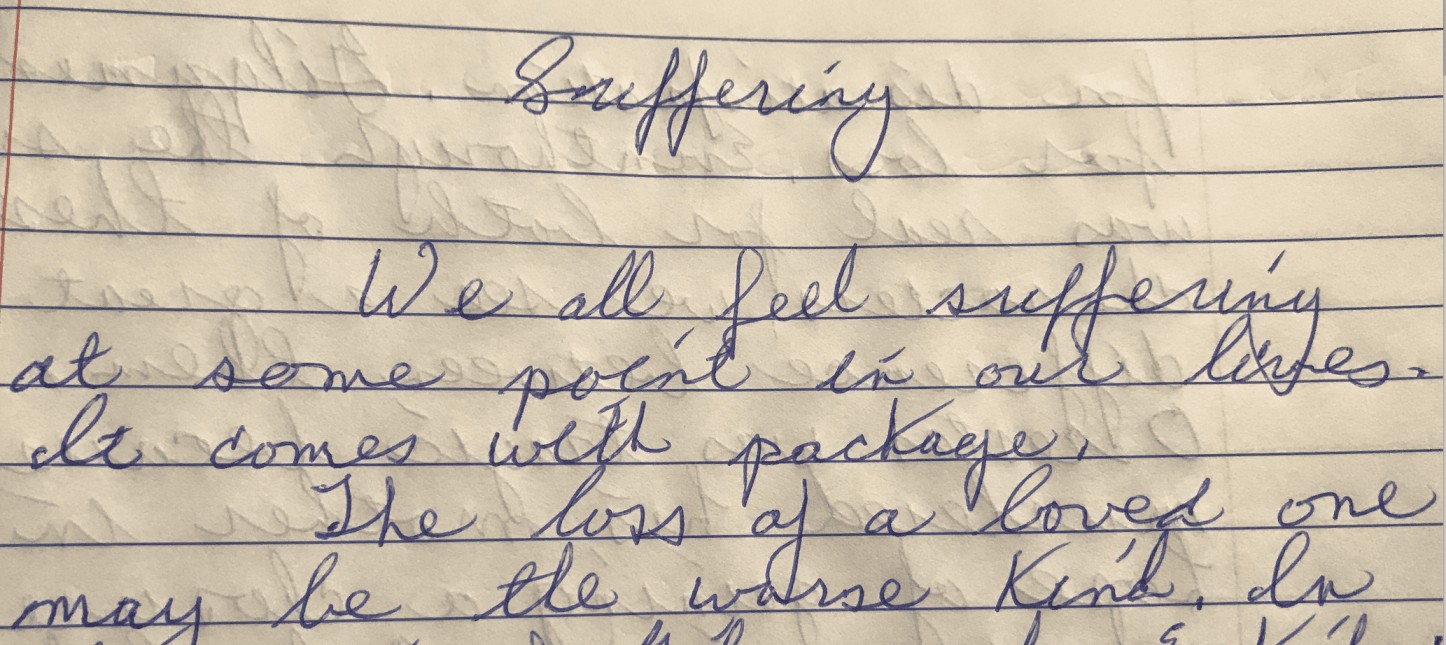 Suffering
We all feel suffering
at some point in our lives.
It comes with package.
The loss of a loved one
may be the worse kind. In